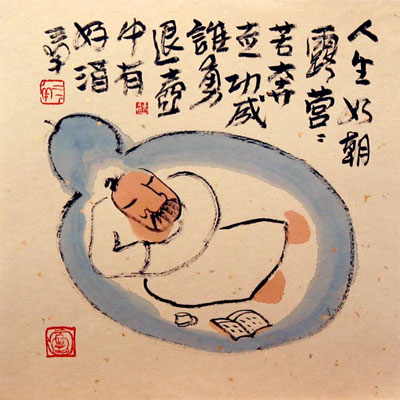 人生如朝
露营〻
苦奔
走功成
誰勇
退壺
中有
好酒